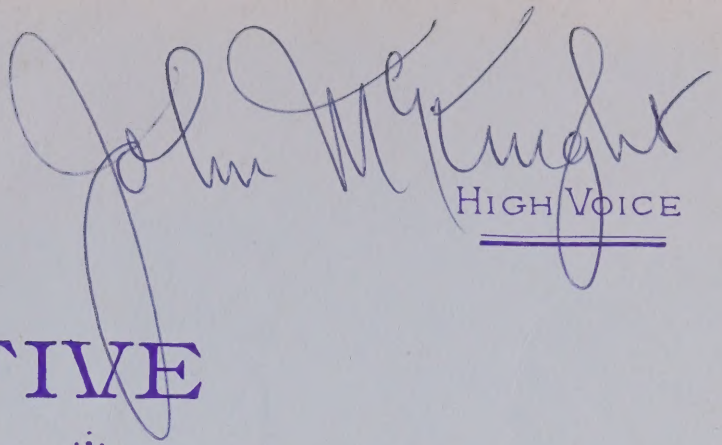 John McKnight
HIGH VOICE
TIVE